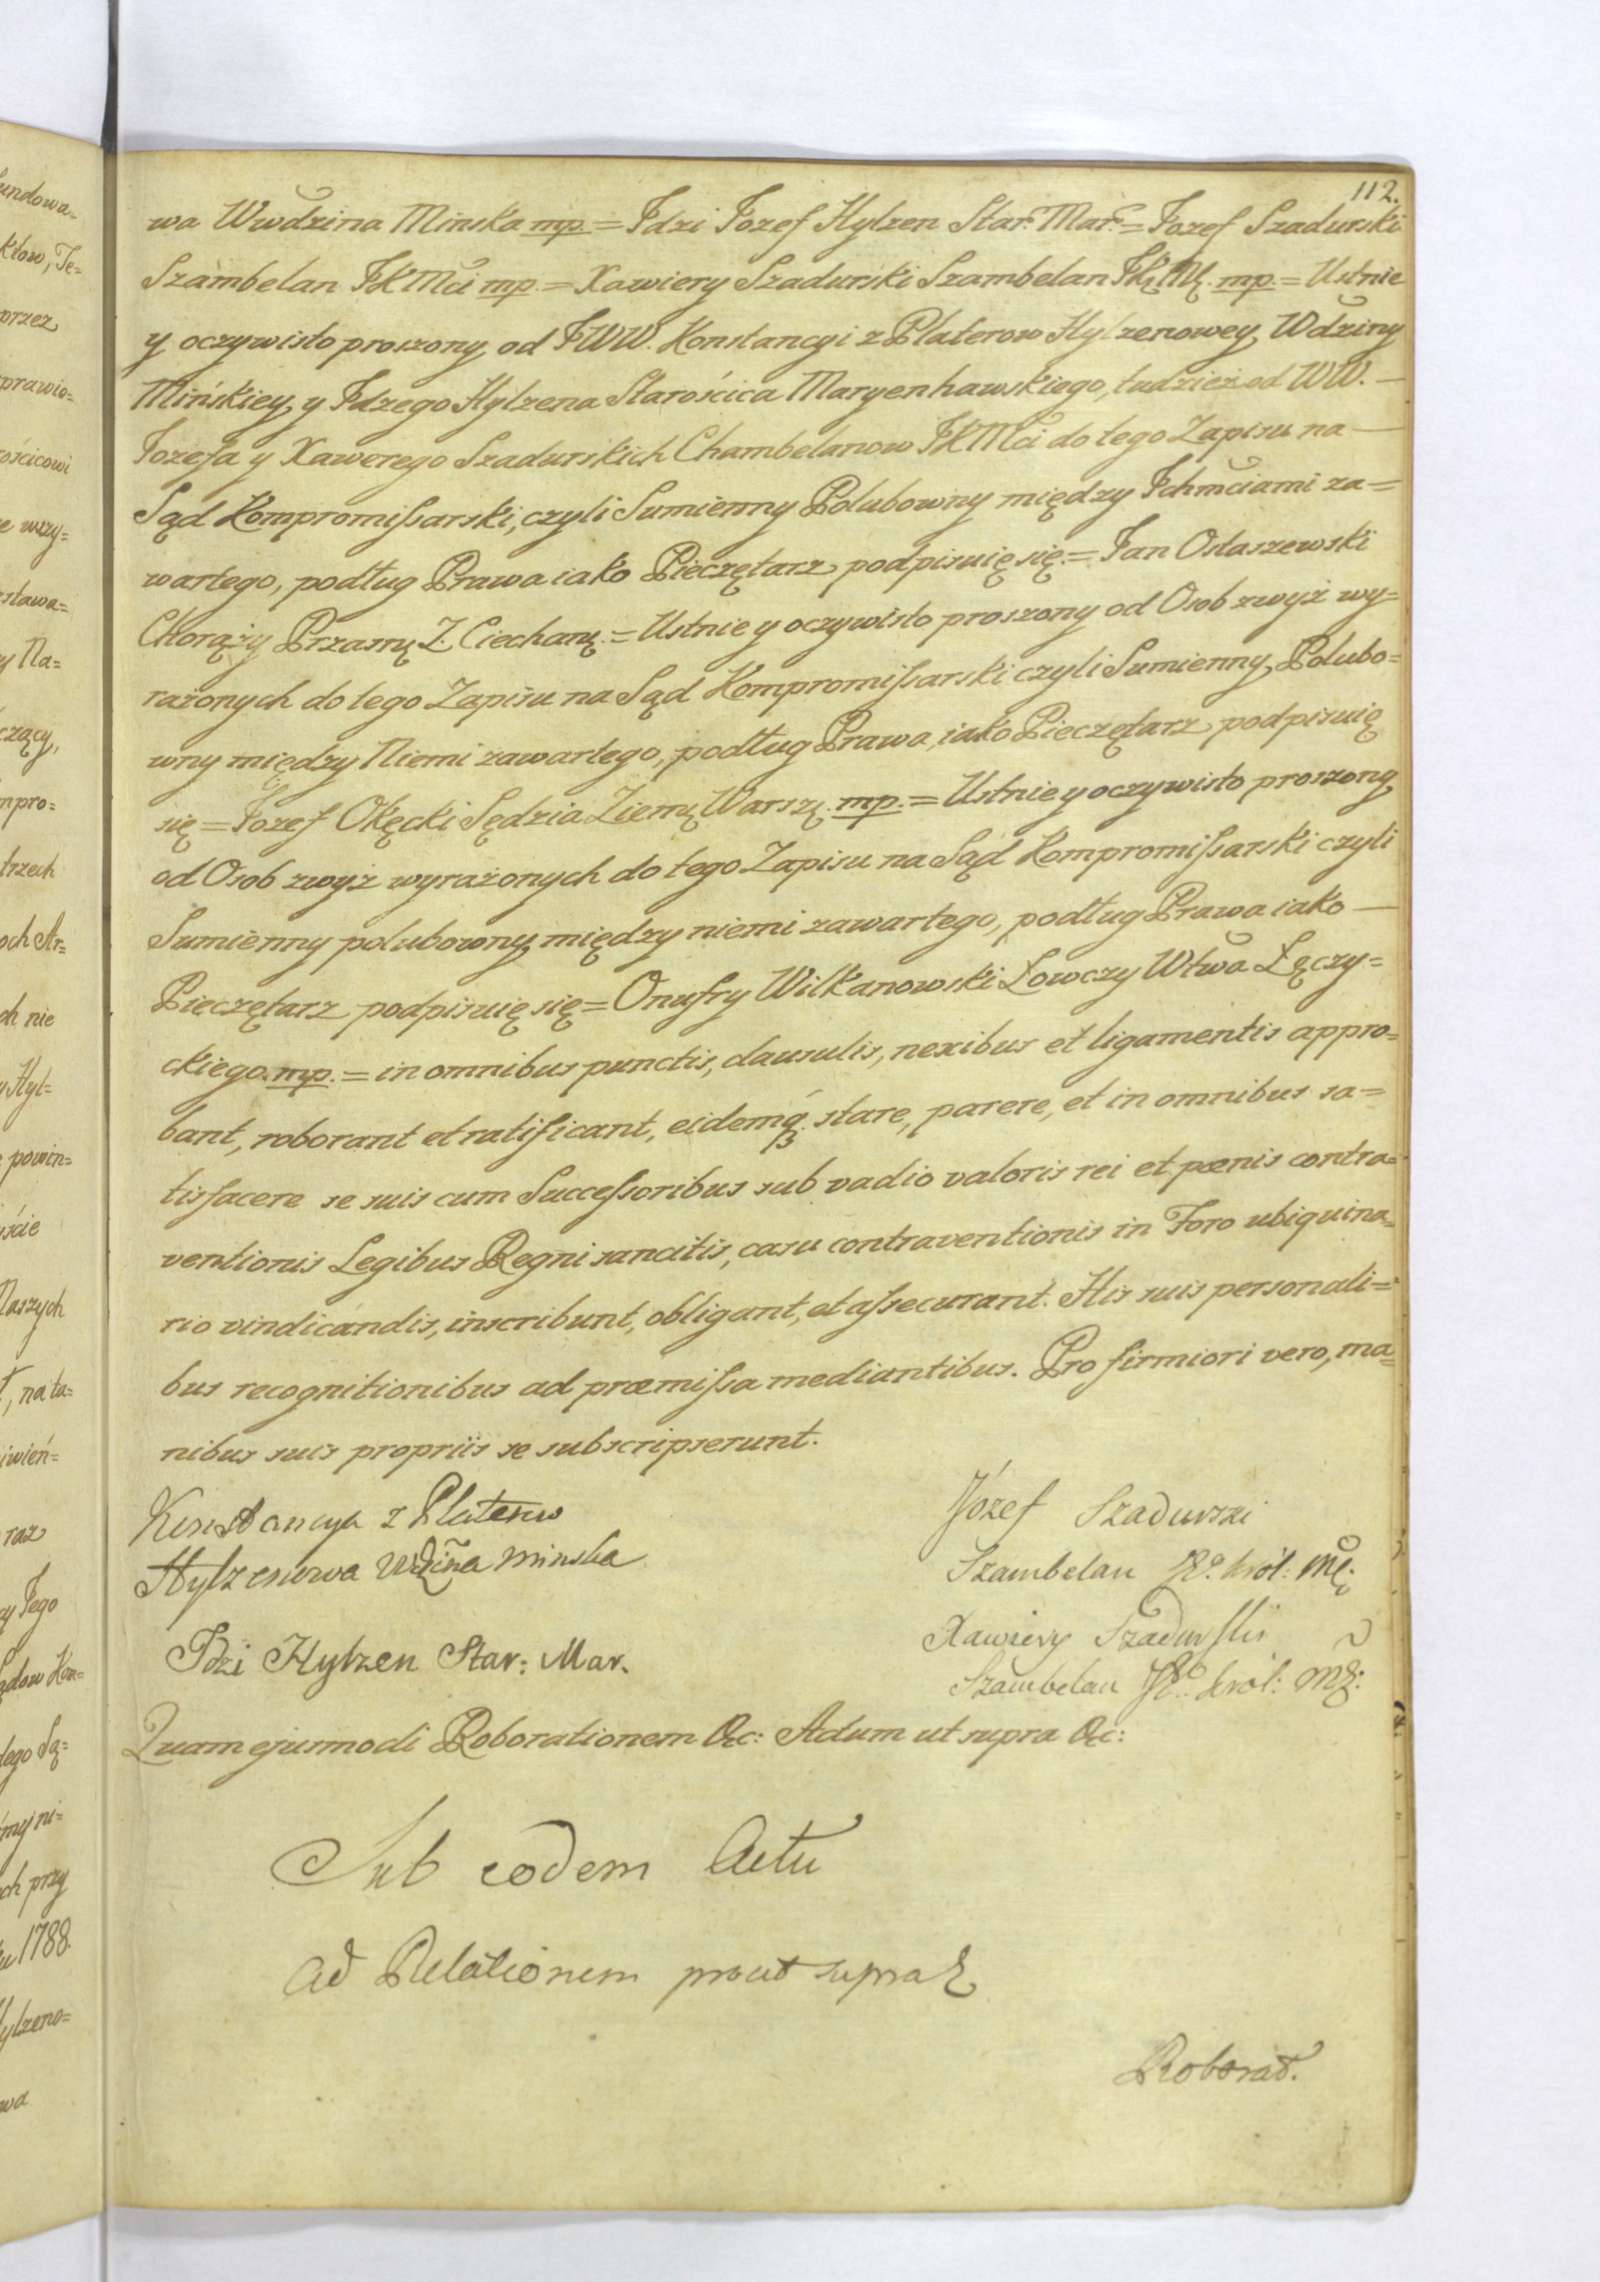 112.
wa Wwdzina Minska mp. = Idzi Jozef Hylzen Star. Mar. = Jozef Szadurski
Szambelan JKMci mp. = Xawiery Szadurski Szambelan mp. = Ustnie
y oczywisto proszony od JWW. Konstancyi z Platerow Hylzenowey, Wdziny
Mińskiey, y Idzego Hylzena Starościca Maryenhawskiego, tudzież od WW. —
Jozefa y Xawerego Szadurskich Chambelanow JKMci do tego Zapisu na —
Sąd Kompromissarski, czyli Sumienny Polubowny między Ichmciami za=
wartego, podług Prawa iako Pieczętarz podpisuię się. = Jan Ostaszewski
Chorąży Przasnę Z. Ciechanę. = Ustnie y oczywisto proszony od Osob zwyż wy=
rażonych do tego Zapisu na Sąd Kompromissarski czyli Sumienny, Polubo=
wny między Niemi zawartego, podług Prawa, iako Pieczętarz podpisuię
się = Jozef Okęcki Sędzia Ziemę Warszę. mp. = Ustnie y oczywisto proszony
od Osob zwyż wyrażonych do tego Zapisu na Sąd Kompromissarski czyli
Sumienny polubowny między niemi zawartego, podług Prawa iako —
Pieczętarz podpisuię się = Onufry Wilkanowski Łowczy Wtwa Łęczy=
ckiego. mp. = in omnibus punctis, clausulis, nexibus et ligamentis appro=
bant, roborant et ratificant, eidemq́ stare, parere, et in omnibus sa=
tisfacere se suis cum Successoribus sub vadio valoris rei et pœnis contra=
ventionis Legibus Regni sancitis, casu contraventionis in Foro ubiquina=
rio vindicandis, inscribunt, obligant, et assecurant. His suis personali=
bus recognitionibus ad præmissa mediantibus. Pro firmiori vero, ma=
nibus suis propriis se subscripserunt.
Konstancya z Platerow
Hylzenowa Wdzina minska
Idzi Hylzen Star: Mar.
Józef Szadurski
Szambelan Jo. król: Mć:
Xawiery Szadurski
Szambelan Jo. król: Mć:
Quam ejusmodi Roborationem &c: Actum ut supra &c:
Sub eodem Actu
Ad Relationem prout supra
Roborat.
undowa=
przez
prawie=
ościcowi
e wszy=
stawa=
y Na=
czący,
mpro=
trzech
och Ar=
ch nie
y Hyl=
powin=
iście
Naszych
, na ta=
raz
y Jego
tego Są=
my ni=
ch przy
1788.
ylzeno=
wa